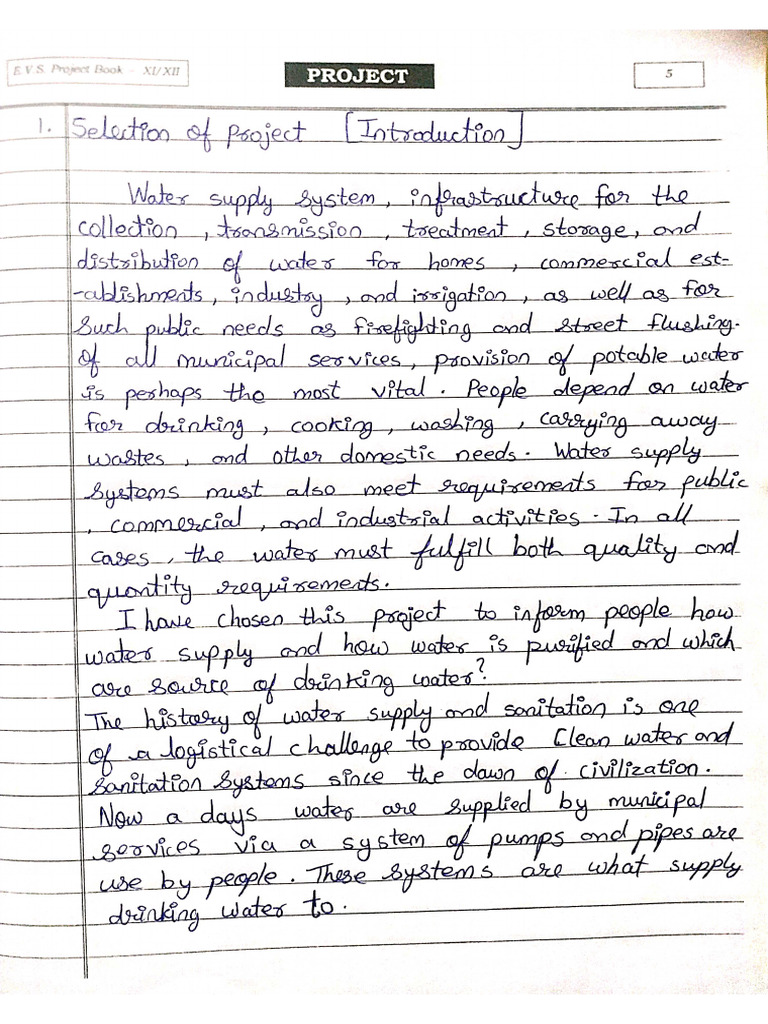 E.V.S. Project Book - XI/XII
PROJECT
5
1. Selection of Project [Introduction]
Water supply system, infrastructure for the
collection, transmission, treatment, storage, and
distribution of water for homes, commercial est-
-ablishments, industry, and irrigation, as well as for
such public needs as firefighting and street flushing.
Of all municipal services, provision of potable water
is perhaps the most vital. People depend on water
for drinking, cooking, washing, carrying away
wastes, and other domestic needs. Water supply
systems must also meet requirements for public
, commercial, and industrial activities. In all
cases, the water must fulfill both quality and
quantity requirements.
I have chosen this project to inform people how
water supply and how water is purified and which
are source of drinking water?
The history of water supply and sanitation is one
of a logistical challenge to provide Clean water and
sanitation systems since the dawn of civilization.
Now a days water are supplied by municipal
services via a system of pumps and pipes are
use by people. These systems are what supply
drinking water to.